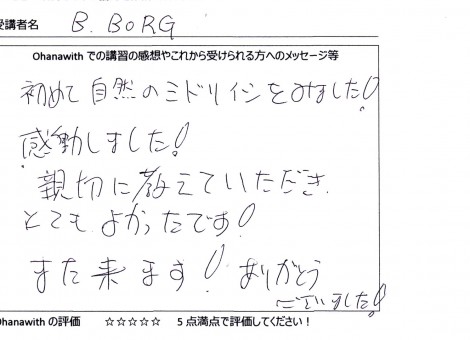 受講者名 B. BORG
Ohanawith での講習の感想やこれから受けられる方へのメッセージ等
初めて自然のミドリイシをみました!
感動しました!
親切に教えていただき
とてもよかったです!
また来ます! ありがとう
ございました!
Ohanawith の評価 ☆☆☆☆☆ 5 点満点で評価してください!